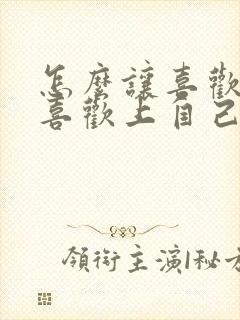 怎麼讓喜歡
喜歡上自己
領銜主演|秘方